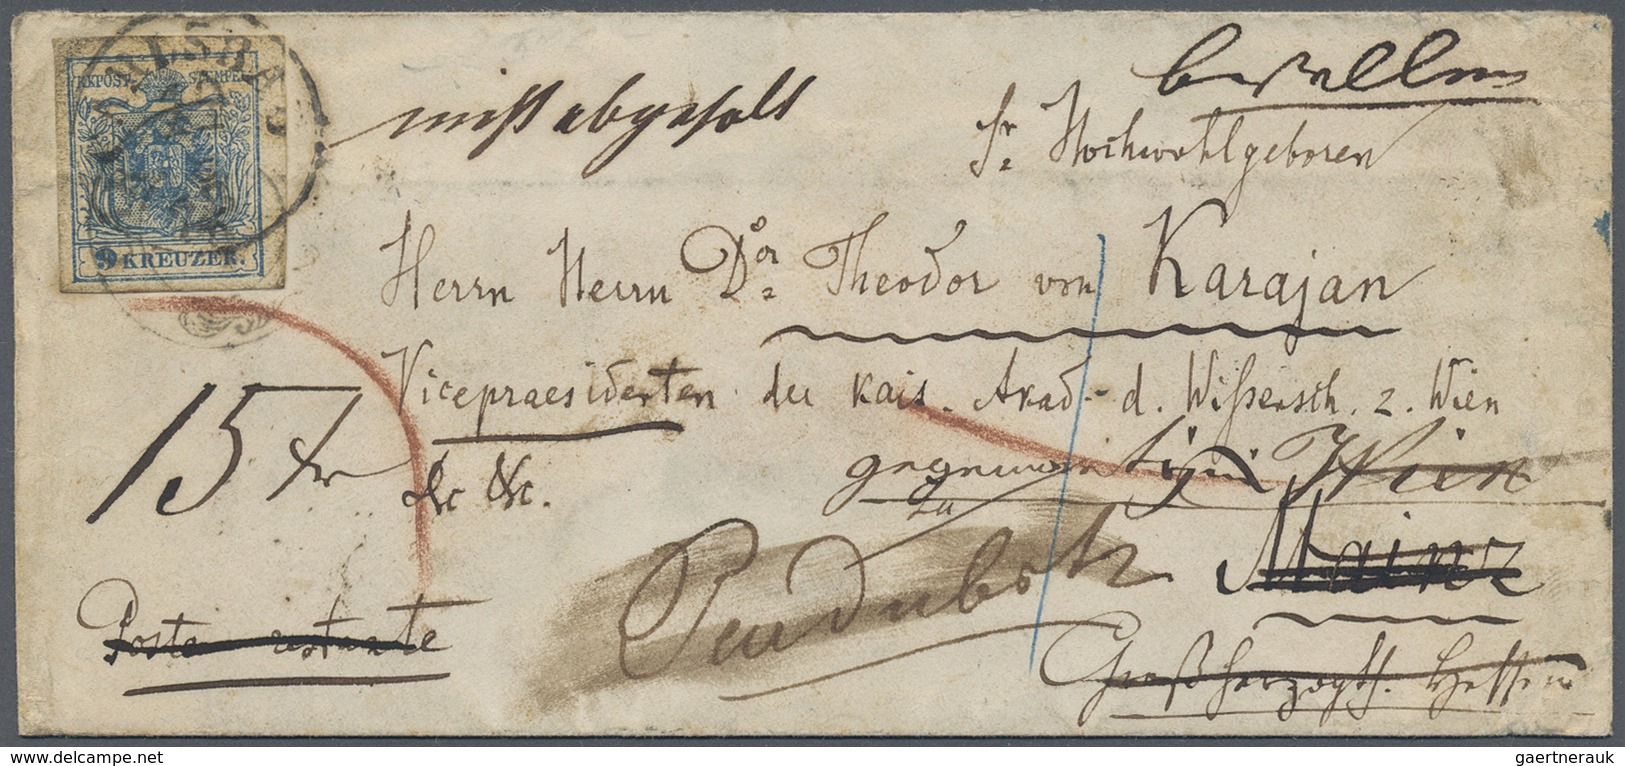 KKPOST-STEMPEL
9 KREUZER.
bestellen
nicht abgeholt
Sr Hochwohlgeboren
Herrn Herrn Dor Theodor von Karajan
Vicepraesidenten der kais. Akad. d. Wißensch. z. Wien
&c &c.
gegenwärtig in Wien
zu
15 xr
Mainz
Poste restante
Großherzogth. Hessen
www.delcampe.net
gaertnerauk